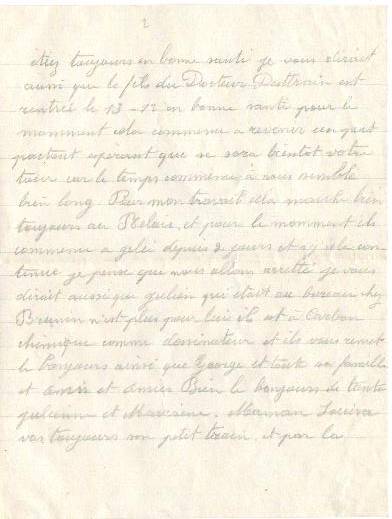 2
étiez toujours en bonne santé je vous dirait
aussi que le fils du Docteur est
rentrée le 13-12 en bonne santé pour le
momment cela commence a revenir un peut
partout espérant que se sera bientot votre
tour car le temps commence a nous semblé
bien long Pour mon travail cela marche bien
toujours au Relais, et pour le momment ils
commence a gelé depuis 2 jours et si cela con-
tinue je pense que nous allons arrétté je vous
dirait aussi que julien qui était au bureau chez
n'est plus pour lui il est a Carbon
chimique comme dessinateur et ils vous remet
le bonjours ainsi que George et toute sa famille
et amis et amies Bien le bonjours de tante
julienne et Maman
vas toujours son petit train, et par la